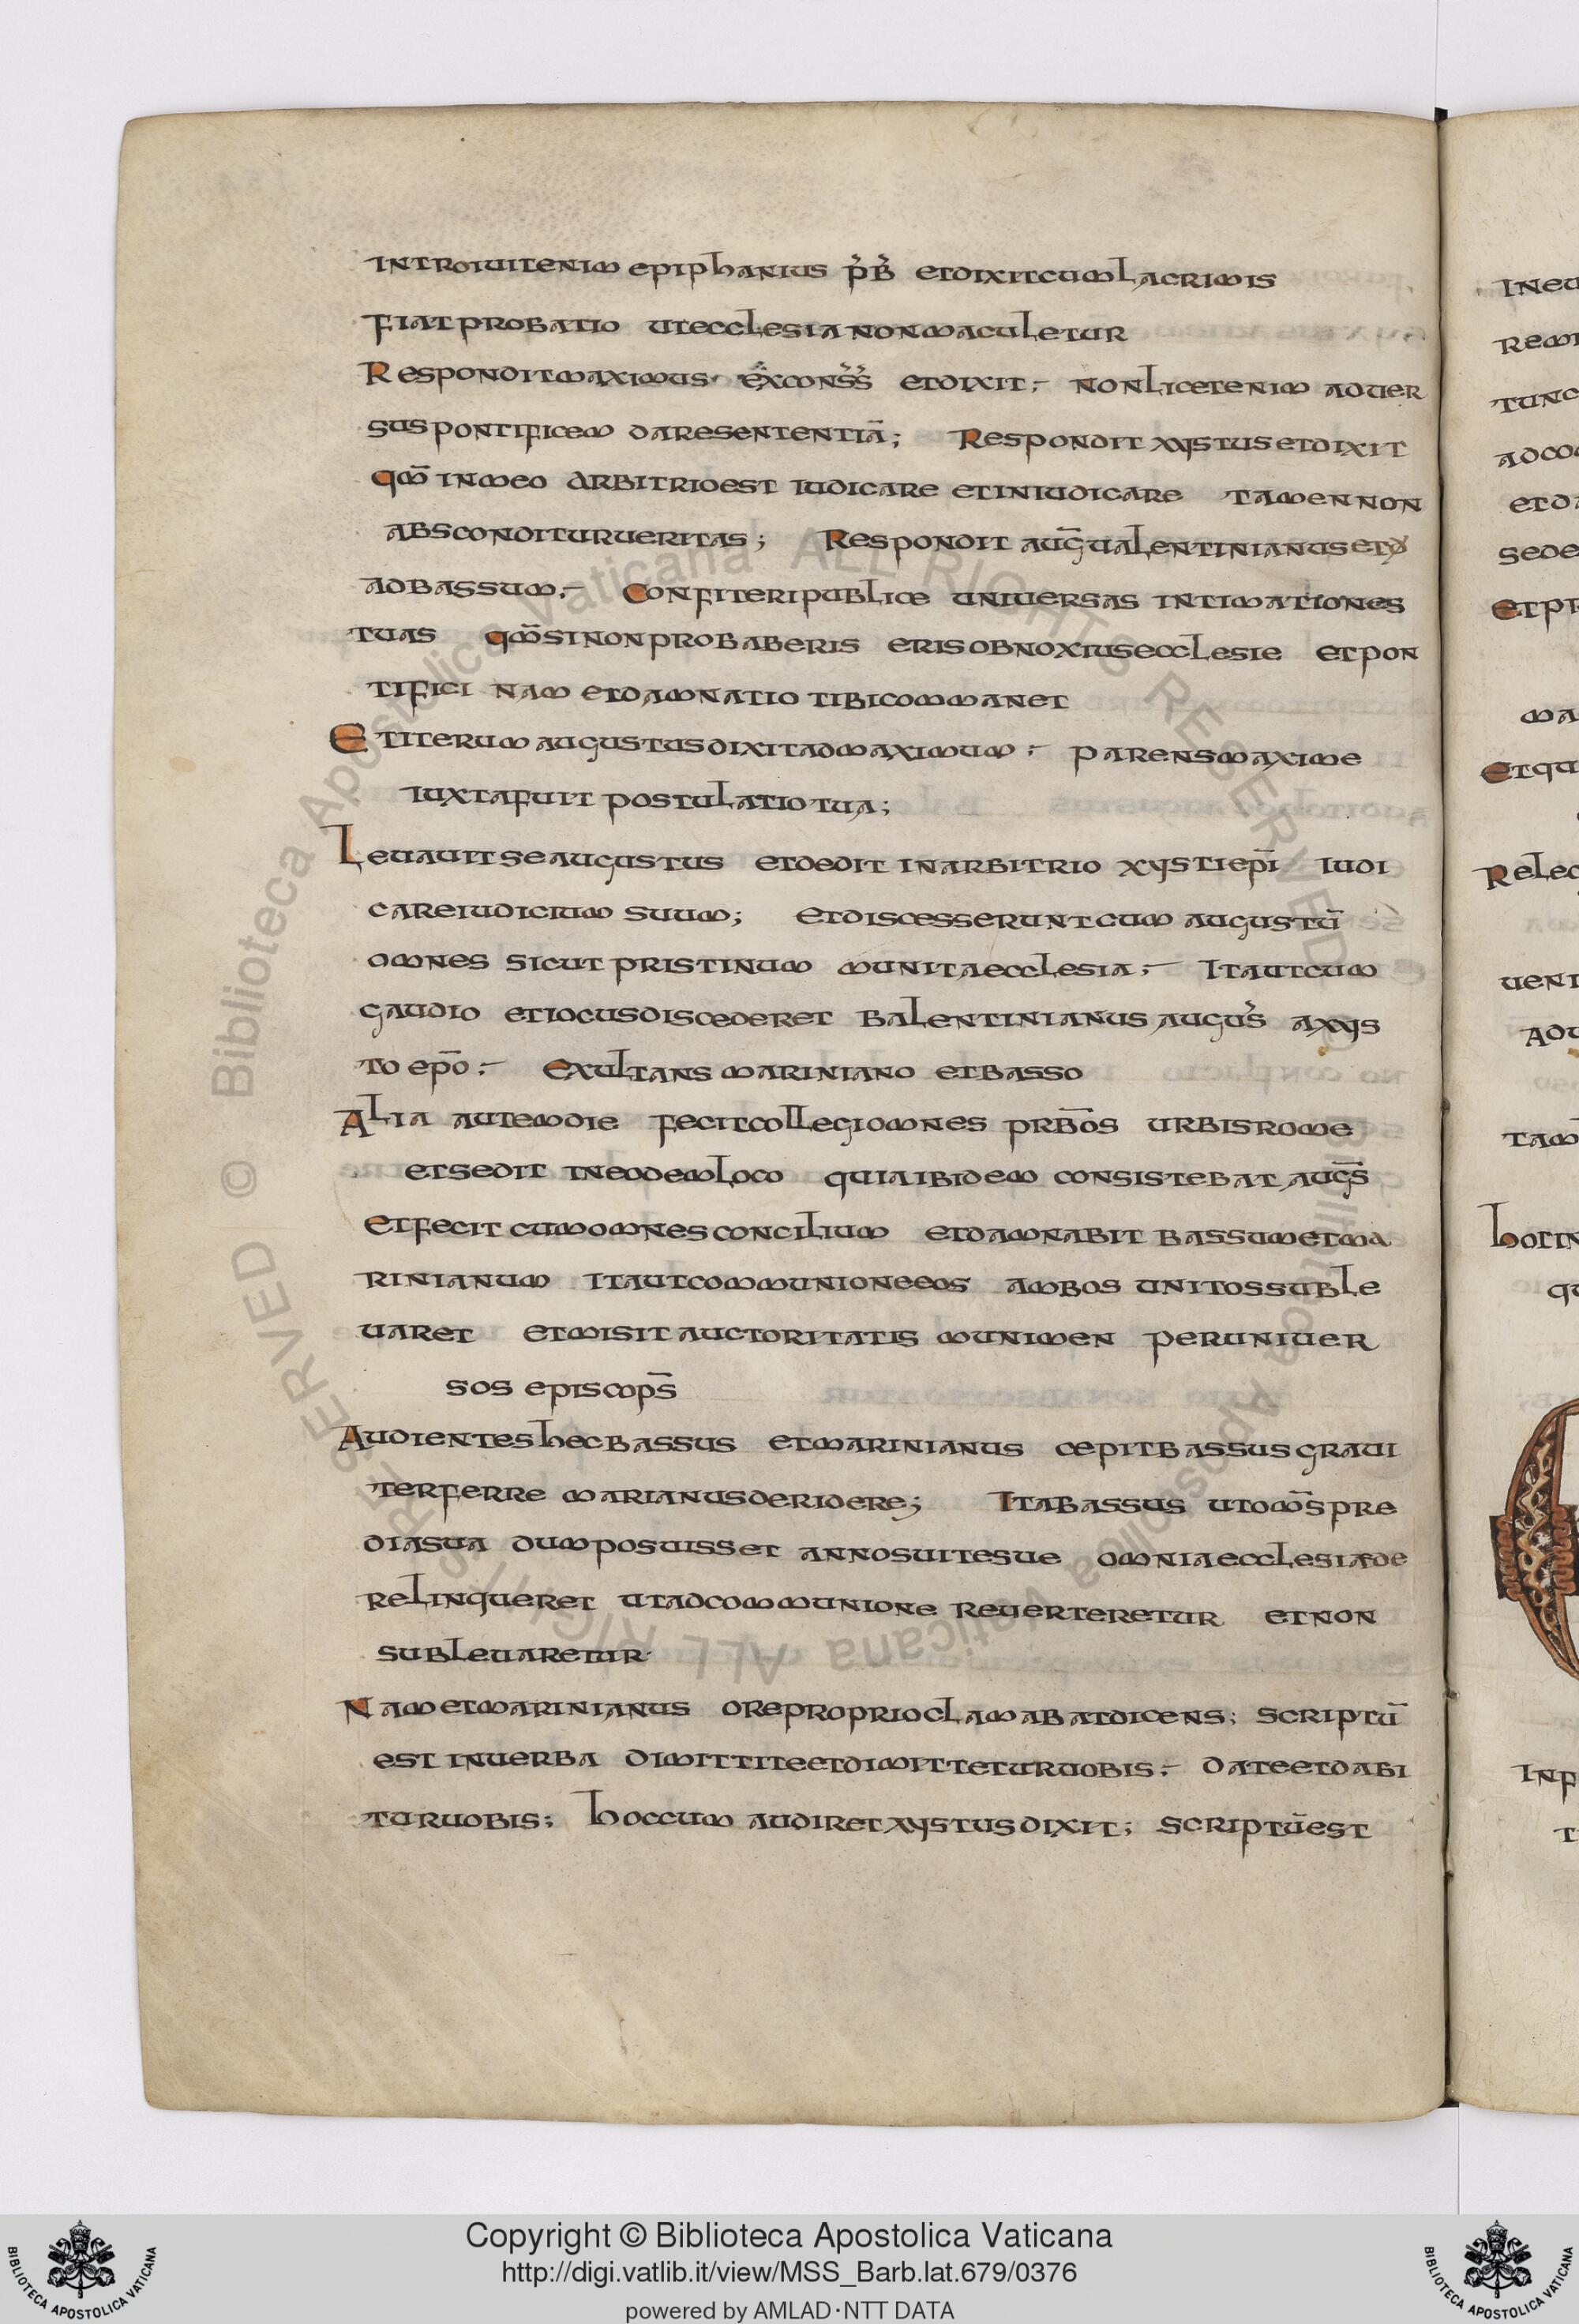 introiuitenim epiphanius p̄r̄b̄ etdixitcumlacrimis
fiatprobatio utecclesianonmaculetur
Responditmaximus· exconss̄ etdixit;- nonlicetenim aduer
suspontificem daresententiā; Respondit xystusetdixit
qm̄ inmeo arbitrioest iudicare etiniudicare tamennon
absconditurueritas; Respondit auḡualentinianusetđ
adbassum;- Confiteripublice uniuersas intimationes
tuas qm̄sinonprobaberis erisobnoxiusecclesie etpon
tifici nam etdamnatio tibicommanet
Etiterumaugustusdixitadmaximum;- parensmaxime
iuxtafuit postulatiotua;
Leuauitseaugustus etdedit inarbitrio xystiepī iudi
careiudicium suum; etdiscesseruntcum augustū
omnes sicut pristinum munitaecclesia;- Itautcum
gaudio etiocusdiscederet balentinianus augus̄ axxys
to epō;- exultans mariniano etbasso
Alia autemdie fecitcollegiomnes prb̄os urbisrome
etsedit ineodemloco quiaibidem consistebat augs̄
Etfecit cumomnesconcilium etdamnabit bassumetma
rinianum itautcommunioneeos ambos unitossuble
uaret etmisit auctoritatis munimen peruniuer
sos episcops̄
Audienteshecbassus etmarinianus cepitbassusgraui
terferre marianusderidere; Itabassus utom̄spre
diasua dumposuisset annosuitesue omniaecclesiæde
relinqueret utadcommunione reuerteretur etnon
subleuaretur·
Nametmarinianus oreproprioclamabatdicens; scriptū
est inuerba dimittiteetdimitteturuobis;- dateetdabi
turuobis; hoccum audiretxystusdixit; scriptūest
ineu
remi
tunc
adco
etda
sede
etpr
ma
etqu
Releg
ueni
adu
tam
hotin
qu
inf
t
© Biblioteca Apostolica Vaticana ALL RIGHTS RESERVED
Copyright © Biblioteca Apostolica Vaticana
http://digi.vatlib.it/view/MSS_Barb.lat.679/0376
powered by AMLAD·NTT DATA
BIBLIOTECA APOSTOLICA VATICANA
BIBLIOTECA APOSTOLICA VATICANA